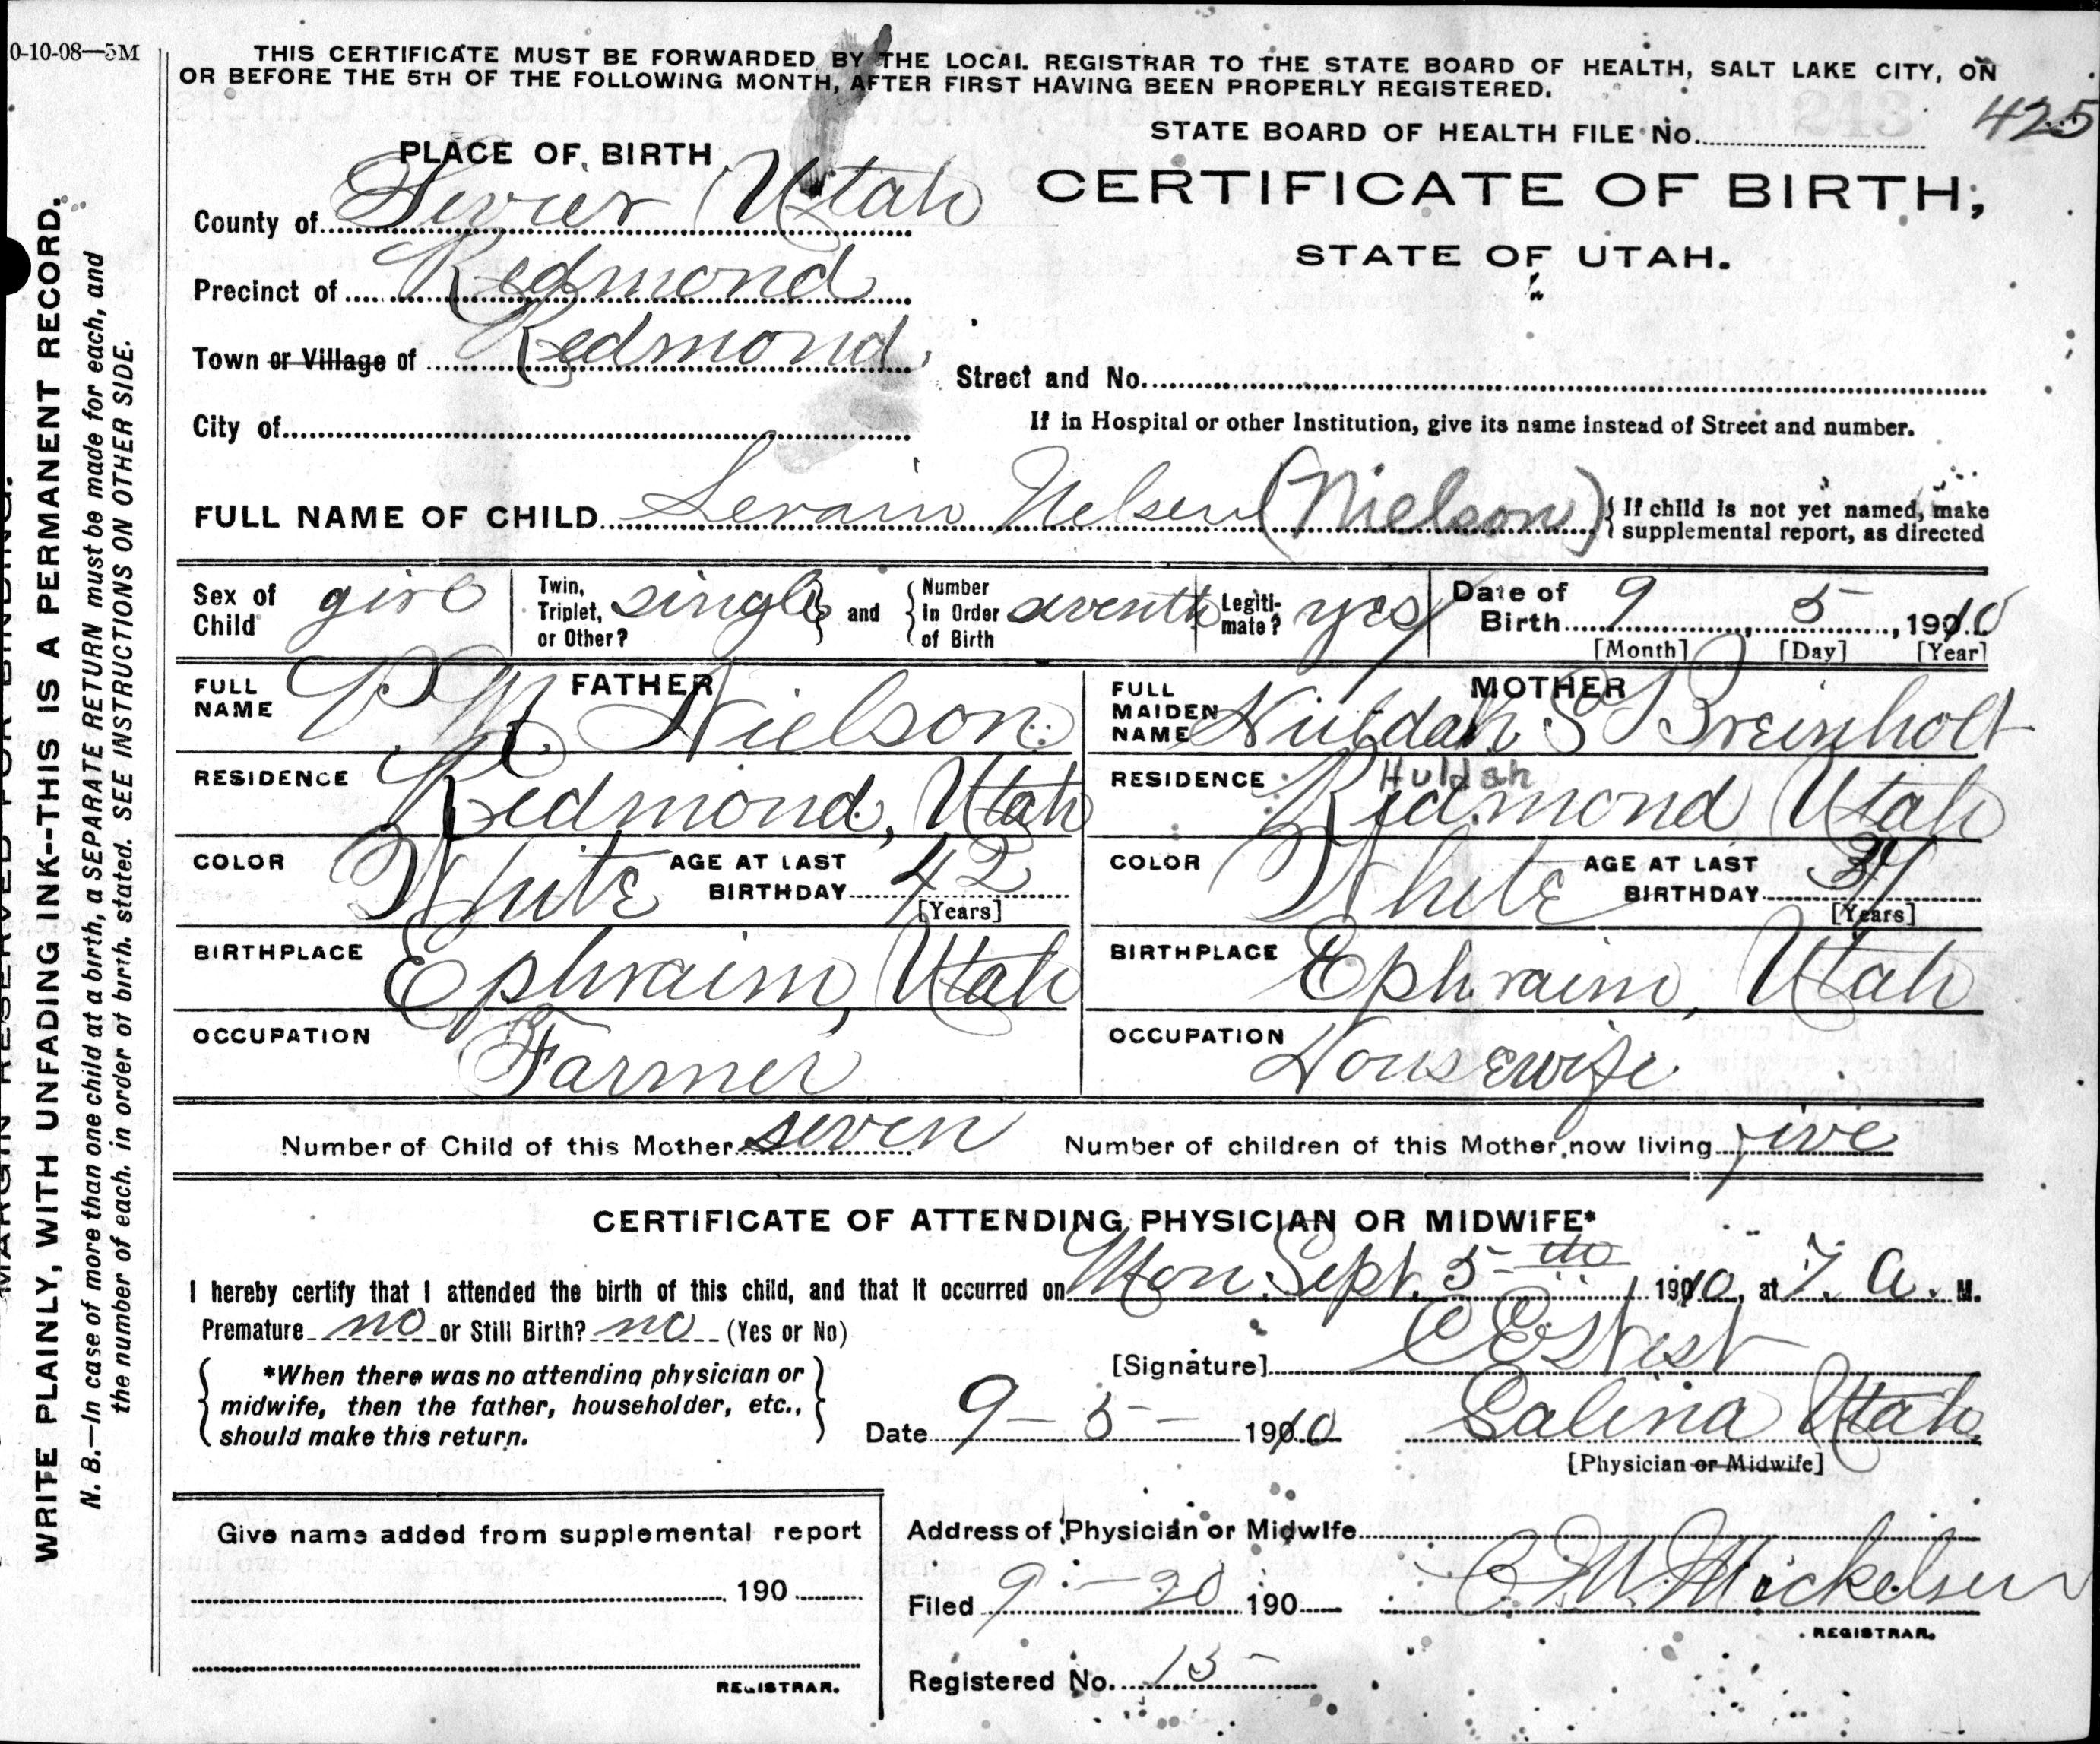 0-10-08—5M
THIS CERTIFICATE MUST BE FORWARDED BY THE LOCAL REGISTRAR TO THE STATE BOARD OF HEALTH, SALT LAKE CITY, ON
OR BEFORE THE 5TH OF THE FOLLOWING MONTH, AFTER FIRST HAVING BEEN PROPERLY REGISTERED.
STATE BOARD OF HEALTH FILE No. 425
PLACE OF BIRTH
CERTIFICATE OF BIRTH,
STATE OF UTAH.
County of Sevier Utah
Precinct of Redmond
Town or Village of Redmond
Street and No.
City of
If in Hospital or other Institution, give its name instead of Street and number.
FULL NAME OF CHILD Nelsen (Nielson) If child is not yet named, make
supplemental report, as directed
Sex of Child girl Twin, Triplet, or Other? single and Number in Order of Birth seventh Legitimate? yes Date of Birth 9 5, 1910
[Month] [Day] [Year]
FATHER
MOTHER
FULL NAME P. M. Nielson
FULL MAIDEN NAME Huldah S Breinholt
Huldah
RESIDENCE Redmond, Utah
RESIDENCE Redmond Utah
COLOR White AGE AT LAST BIRTHDAY 42 [Years]
COLOR White AGE AT LAST BIRTHDAY [Years]
BIRTHPLACE Ephraim, Utah
BIRTHPLACE Ephraim, Utah
OCCUPATION Farmer
OCCUPATION Housewife
Number of Child of this Mother seven Number of children of this Mother now living five
CERTIFICATE OF ATTENDING PHYSICIAN OR MIDWIFE*
I hereby certify that I attended the birth of this child, and that it occurred on Mon. Sept. 5th 1910, at 7. A. M.
Premature no or Still Birth? no (Yes or No)
[Signature]
*When there was no attending physician or
midwife, then the father, householder, etc.,
should make this return.
Date 9-5-1910 Salina Utah
[Physician or Midwife]
Give name added from supplemental report
190
REGISTRAR.
Address of Physician or Midwife
Filed 9-20 190 C. M. Mickelsen
REGISTRAR.
Registered No. 15
MARGIN RESERVED FOR BINDING.
WRITE PLAINLY, WITH UNFADING INK--THIS IS A PERMANENT RECORD.
N. B.—In case of more than one child at a birth, a SEPARATE RETURN must be made for each, and
the number of each, in order of birth, stated. SEE INSTRUCTIONS ON OTHER SIDE.